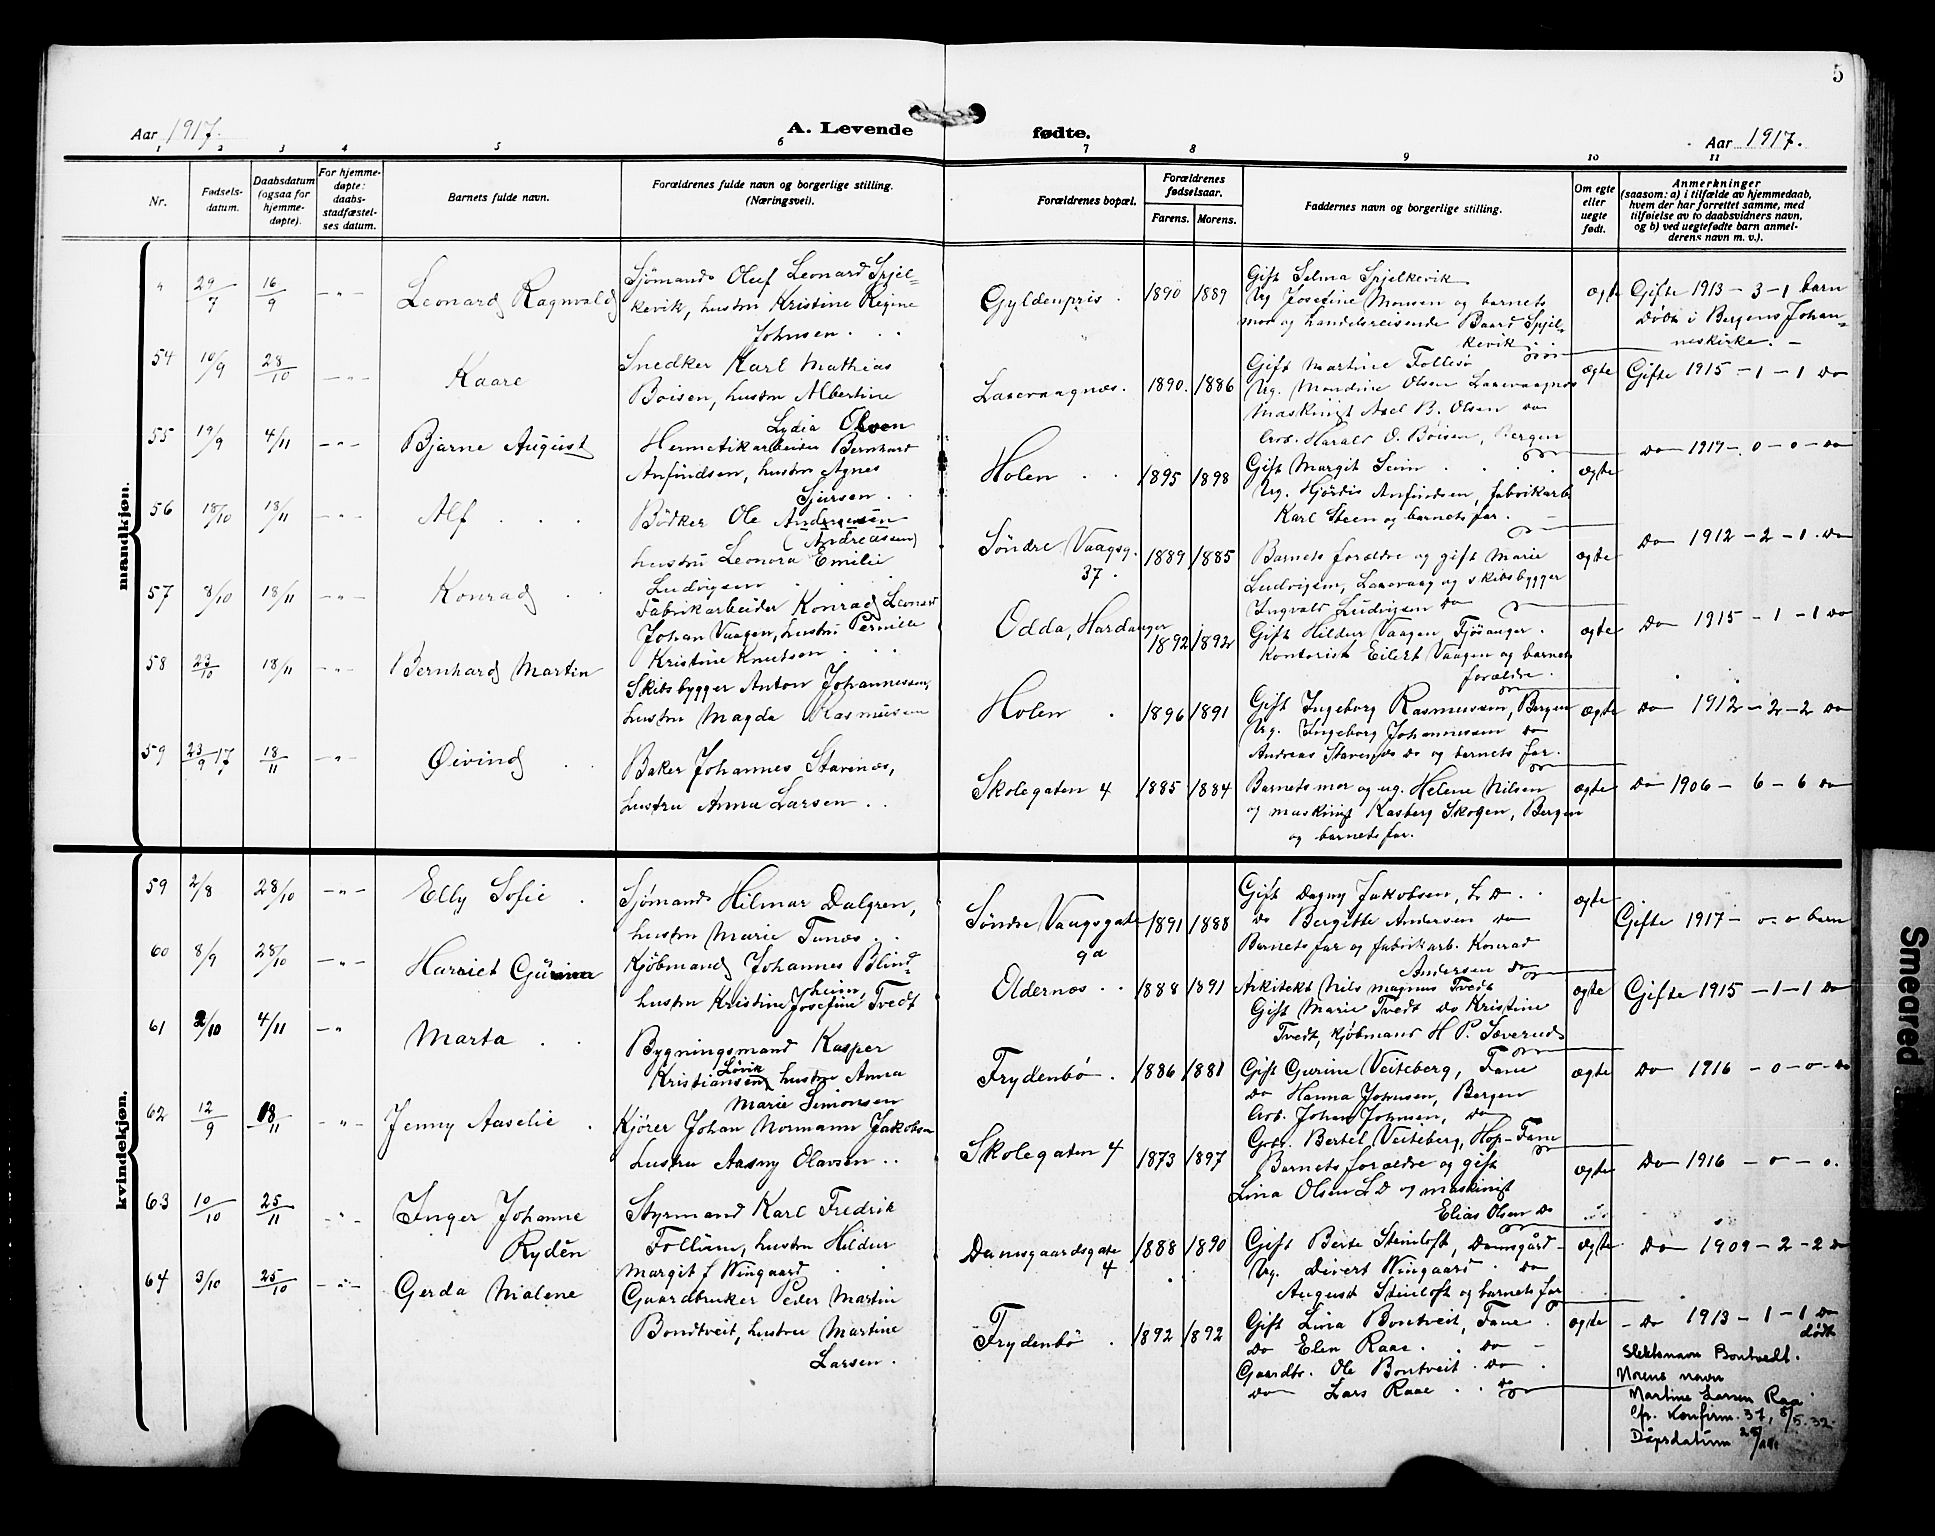 5
Aar 1917.
A. Levende fødte.
Aar 1917.
1 2 3 4 5 6 7 8 9 10 11
Nr.
Fødsels-
datum.
Daabsdatum
(ogsaa for
hjemme-
døpte).
For hjemme-
døpte:
daabs-
stadfæstel-
ses datum.
Barnets fulde navn.
Forældrenes fulde navn og borgerlige stilling.
(Næringsvei).
Forældrenes bopæl.
Forældrenes
fødselsaar.
Farens. Morens.
Faddernes navn og borgerlige stilling.
Om egte
eller
uegte
født.
Anmerkninger
(saasom: a) i tilfælde av hjemmedaab,
hvem der har forrettet samme, med
tilføielse av to daabsvidners navn,
og b) ved uegtefødte barn anmel-
derens navn m. v.).
mandkjøn.
" 29/7 16/9 -"- Leonard Ragnvald
Sjömand Oluf Leonard Spjel-
kevik, hustru Kristine Regine
Johnsen . . .
Gyldenpris . 1890 1889
Gift Selma Spjelkevik
Ug Josefine Monsen og barnets
mor og handelsreisende Baard Spjel-
kevik
ægte
Gifte 1913 - 3 - 1 barn
Döbt i Bergens Johan-
neskirke. -
54 10/9 28/10 -"- Kaare
Snedker Karl Mathias
Boisen, hustru Albertine
Lydia Olsen
Laxevaagnæs. 1890. 1886
Gift Martine Follesö
Ug. Mondine Olsen Laxevaagnæs
Maskinist Axel B. Olsen do
Arb. Harald O. Böisen, Bergen
ægte
Gifte 1915 - 1 - 1 do
55 19/9 4/11 -"- Bjarne August
Hermetikarbeider Bernhard
Anfindsen, hustru Agnes
Sjursen . .
Holen . . 1895 1898
Gift Margit Seim . . .
Ug. Hjördis Anfindsen, fabrikarb.
Karl Steen og barnets far. -
ægte
do 1917 - 0 - 0 - do
56 18/10 18/11 -"- Alf . . .
Bödker Ole Andersen
(Andreasen)
hustru Leonora Emilie
Ludvigsen
Söndre Vaagsg.
37 .
1889 1885
Barnets forældre og gift Marie
Ludvigsen, Laxevaag og skibsbygger
Ingvald Ludvigsen do
ægte
do 1912 - 2 - 1. do
57 8/10 18/11 -"- Konrad . .
Fabrikarbeider Konrad Leonard
Johan Vaagen, hustru Pernille
Kristine Knutson . . .
Odda, Hardanger
1892 1892
Gift Hildur Vaagen, Fjösanger .
Kontorist Eilert Vaagen og barnets
forældre.
ægte
do 1915 - 1 - 1 do
58 23/10 18/11 -"- Bernhard Martin
Skibsbygger Anton Johannessen,
hustru Magda Rasmussen
Holen . 1896 1891
Gift Ingeborg Rasmussen, Bergen
Ug. Ingeborg Johannessen do
Andreas Stavenæs do og barnets far.
ægte
do 1912 - 2 - 2 do
59 23/9 17. 18/11 -"- Øivind . .
Baker Johannes Stavenæs,
hustru Anna Larsen . .
Skolegaten 4 1885 1884
Barnets mor og ug. Helene Nilsen
og maskinist Kasberg Skogen, Bergen
og barnets far.
ægte
do 1906 - 6 - 6 do
kvindekjøn.
59 2/8 28/10 -"- Elly Sofie .
Sjömand Hilmar Dalgren,
hustru Marie Tunæs . .
Söndre Vaagsgate
9a
1891 1888
Gift Dagny Jakobsen, L D . .
do Bergitte Andersen do
Barnets far og fabrikarb. Konrad
Andersen do
ægte
Gifte 1917 - 0 - 0 barn
60 8/9 28/10 -"- Harriet Gurine
Kjöbmand Johannes Blind-
heim,
hustru Kristine Josefine Tvedt
Eldernæs . . 1888 1891
Arkitekt Nils Magnus Tvedt
Gift Marie Tvedt do Kristine
Tvedt, Kjöbmand H P. Sæverud
ægte
Gifte 1915 - 1 - 1 do
61 2/10 4/11 -"- Marta . .
Bygningsmand Kasper
Lövik
Kristiansen, hustru Anna
Marie Simonsen
Frydenbö . 1886 1881
Gift Gurine Veiteberg, Fane
do Hanna Johnsen, Bergen
Arb. Johan Johnsen, do
Gbr. Bertel Veiteberg, Hop-Fane
ægte
do 1916 - 0 - 0 - do
62 12/9 18/11 -"- Jenny Aaselie .
Kjörer Johan Normann Jakobsen
hustru Aasny Olavsen . .
Skolegaten 4 1873 1897
Barnets forældre og gift
Lina Olsen L D og maskinist
Elias Olsen do
ægte
do 1916 - 0 - 0.
63 10/10 25/11 -"- Inger Johanne
Rydèn
Styrmand Karl Fredrik
Folliem, hustru Hildur
Margit f Wingaard . .
Damsgaardsgate
4
1888 1890
Gift Berte Steinloft, Damsgård -
Ug. Divert Wingaard . do
August Steinloft og barnets far
ægte
do 1909 - 2 - 2 do
64 3/10 25/10 -"- Gerda Malene
Gaardbruker Peder Martin
Bondtveit, hustru Martine
Larsen .
Frydenbö . 1892 1892
Gift Lina Bontveit, Fane .
do Elen Raae . . do -
Gaardbr. Ole Bontveit . do .
do Lars Raae . . do
ægte
- do 1913 - 1 - 1 do
dödt
Slektsnavn Bontvedt.
Morens navn
Martine Larsen Raa
Cfr. Konfirm. 37, 8/5.32.
Dåpsdatum
Smeared